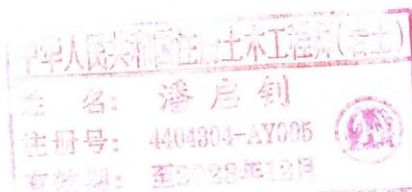 中华人民共和国注册土木工程师(岩土)
姓 名: 潘启钊
注册号: 4404304-AY005
有效期: 至2023年12月